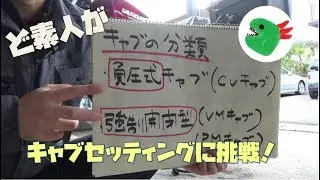 ど素人が
キャブの分類
・負圧式キャブ(CVキャブ)
強制開閉型(VMキャブ)
キャブセッティングに挑戦!